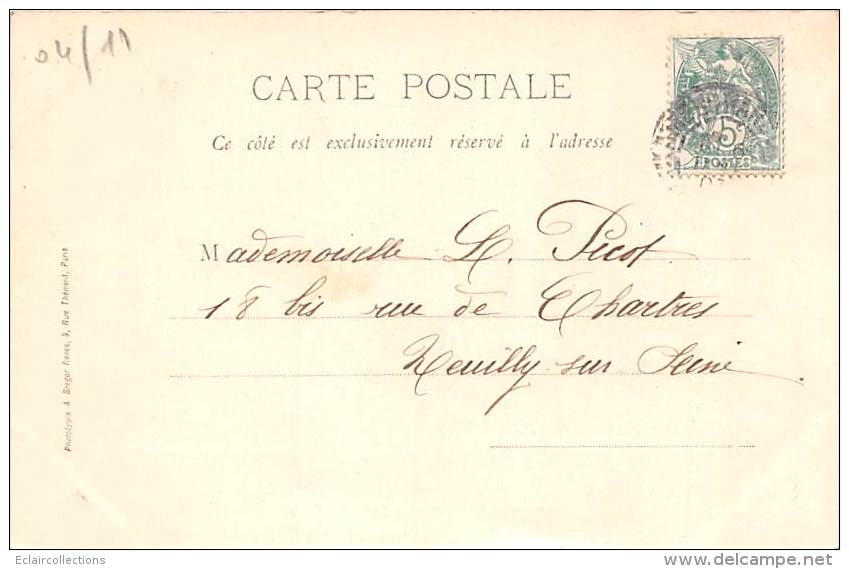 04/11
CARTE POSTALE
Ce côté est exclusivement réservé à l'adresse
5c
POSTES
Mademoiselle L. Picot
18 bis rue de Chartres
Neuilly sur Seine
Phototypie A. Breger frères, 9, Rue Thénard, Paris
Eclaircollections
www.delcampe.net